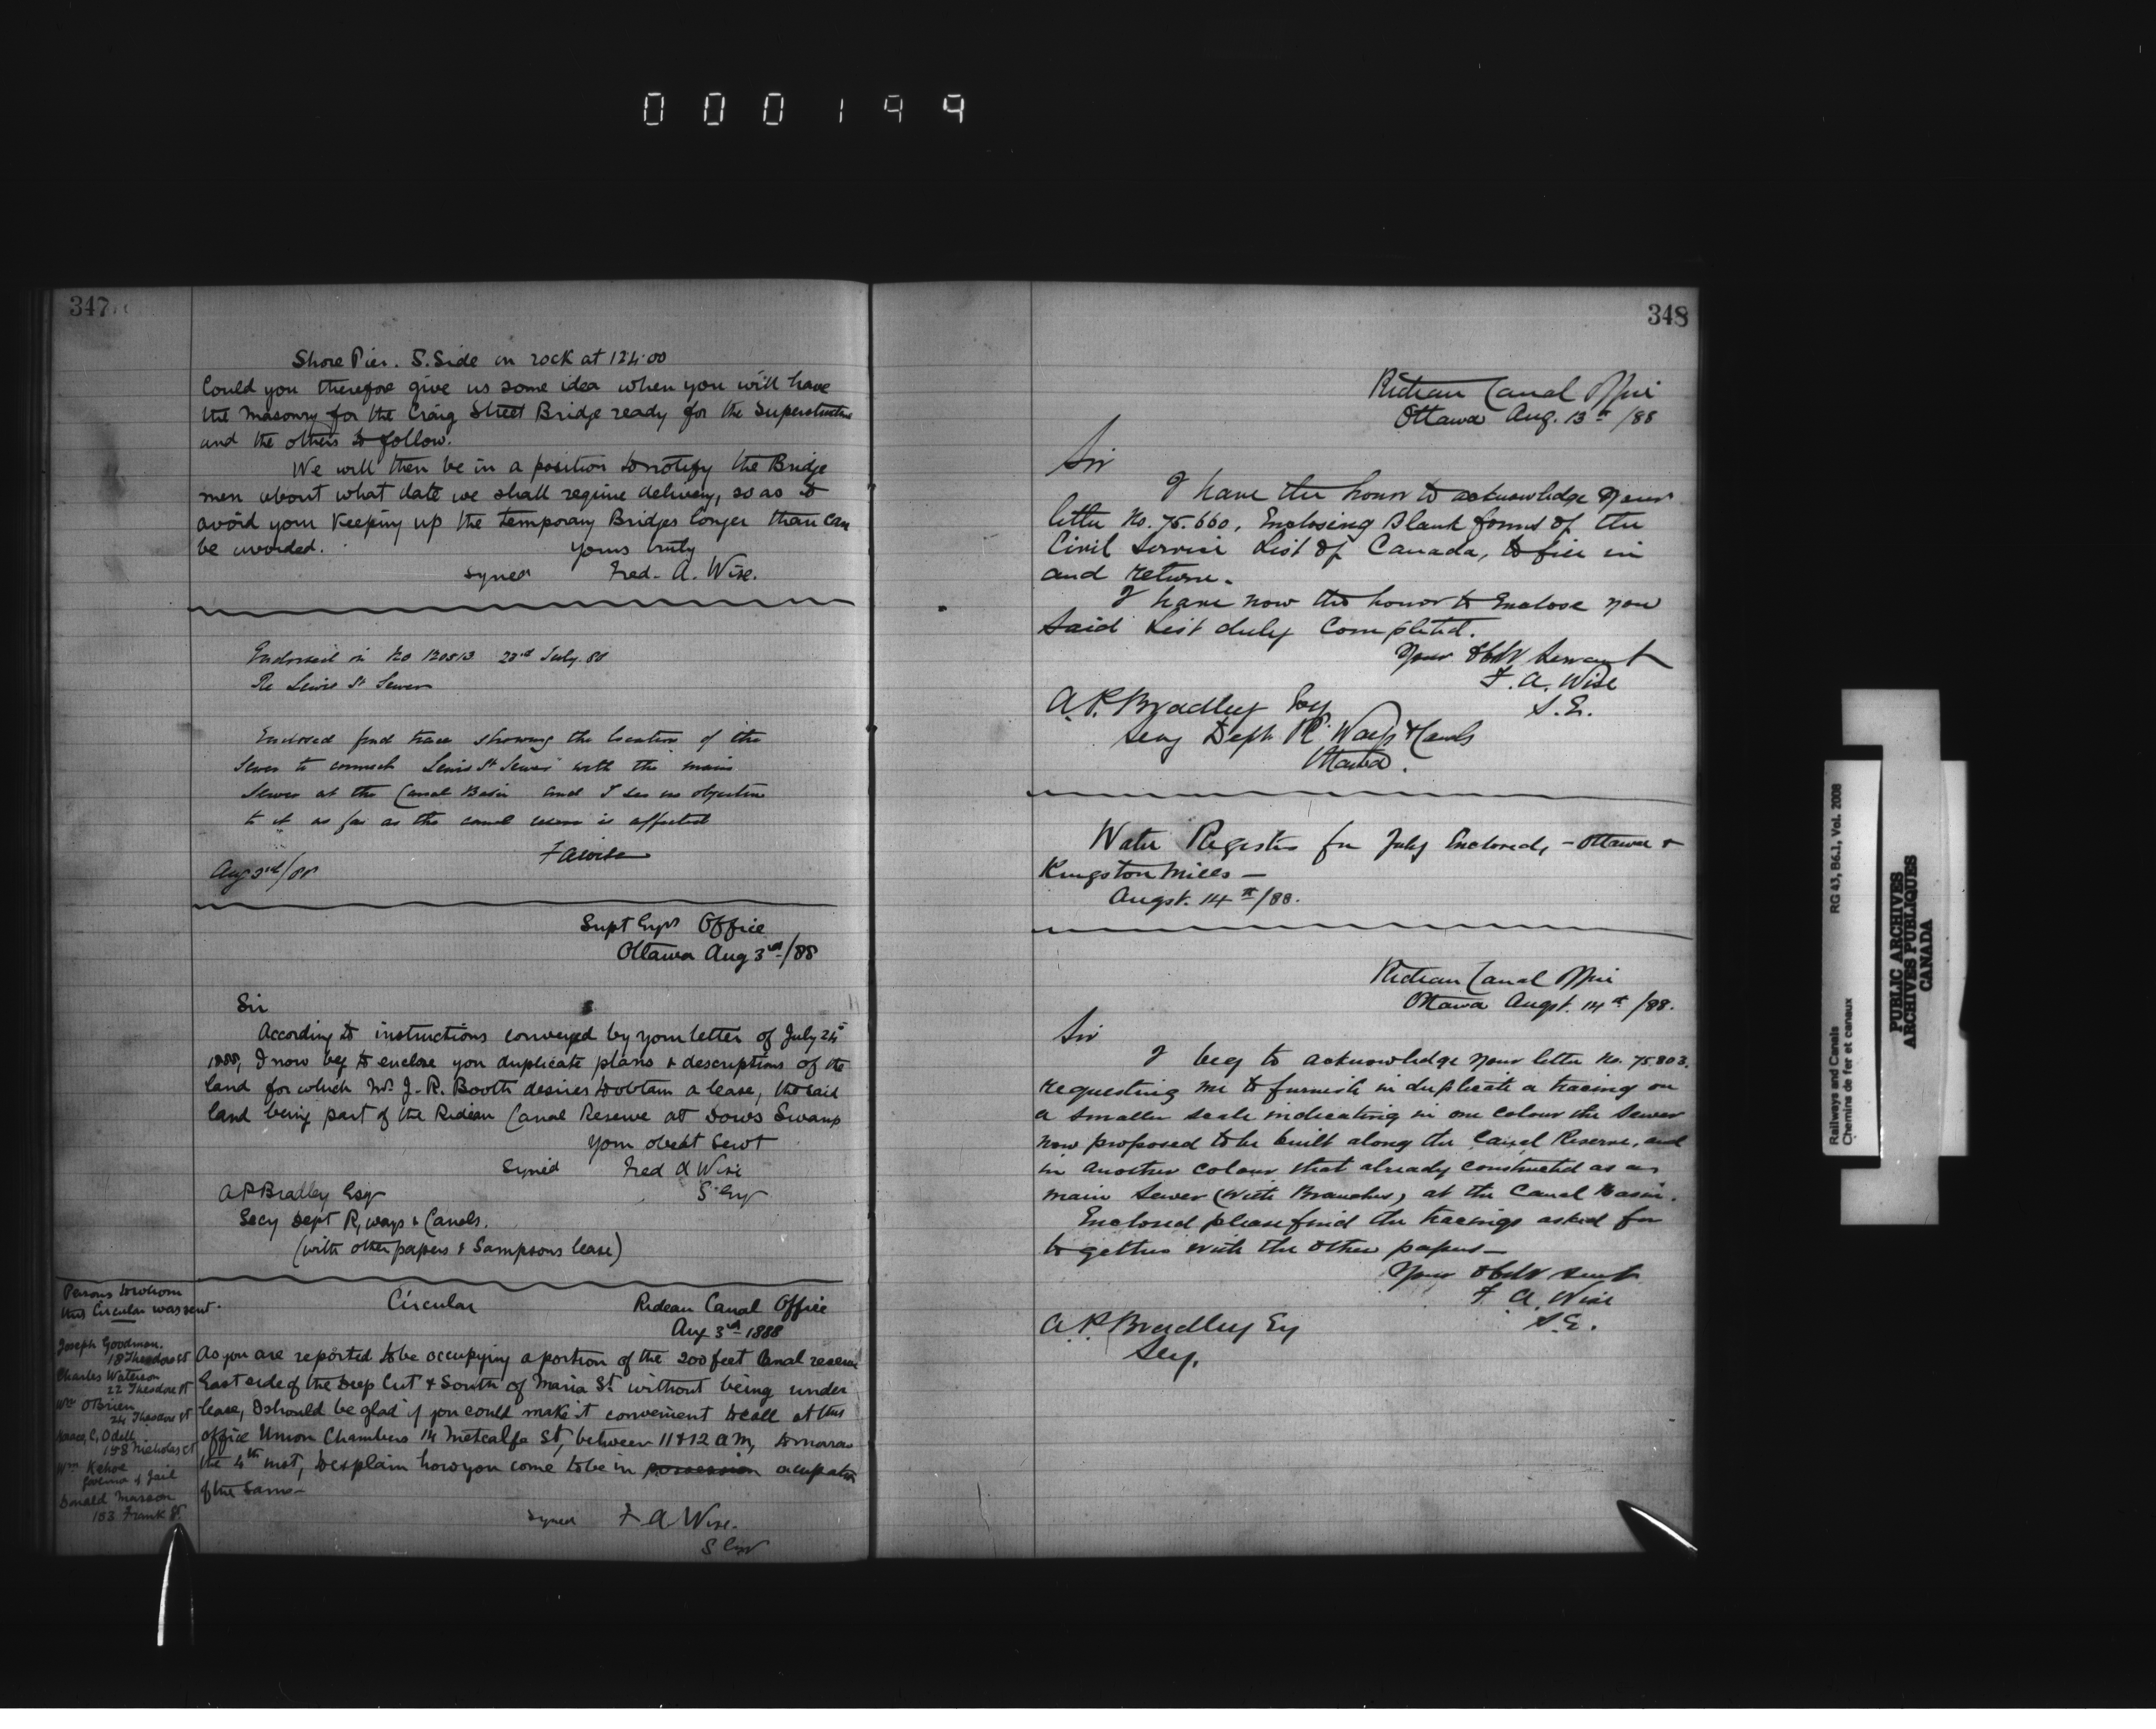 000199
347
Shore Pier. S. Side on rock at 124.00
Could you therefore give us some idea when you will have
the Masonry for the Craig Street Bridge ready for the Superstructure
and the others to follow.
We will then be in a position to notify the Bridge
men about what date we shall require delivery, so as to
avoid your Keeping up the temporary Bridges longer than can
be avoided.
Yours truly
signed Fred. A. Wise.
Endorsed on No 120813 23rd July 88
Re Lewis St Sewer
Enclosed find trace showing the location of the
Sewer to connect Lewis St Sewer with the main
Sewer at the Canal Basin and I see no objection
to it as far as the canal is affected
F A Wise
Aug 3rd/88
Supt Engrs Office
Ottawa Aug 3rd/88
Sir
According to instructions conveyed by your letter of July 24th
1888, I now beg to enclose you duplicate plans & descriptions of the
land for which Mr J. R. Booth desires to obtain a lease, the said
land being part of the Rideau Canal Reserve at Dows Swamp
Your obedt Servt
Signed Fred A Wise
S. Engr
A P Bradley Esqr
Secy Dept R,ways & Canals.
(with other papers & Sampsons lease)
Persons to whom
this Circular was sent.
Joseph Goodman.
18 Theodore St
Charles Waterson
22 Theodore St
Wm OBrien
24 Theodore St
Isaac C, Odell
148 Nicholas St
Wm Kehoe
Governor of Jail
Donald Masson
153 Frank St.
Circular Rideau Canal Office
Aug 3rd 1888
As you are reported to be occupying a portion of the 200 feet Canal reserve
East side of the Deep Cut & South of Maria St. without being under
lease, I should be glad if you could make it convenient to call at this
office Union Chambers 14 Metcalfe St, between 11 & 12 a m, tomorrow
the 4th inst, to explain how you come to be in possession occupation
of the same-
signed F A Wise.
S Engr
348
Rideau Canal Office
Ottawa Aug. 13th/88
Sir
I have the honor to acknowledge your
letter No. 75.660, Enclosing Blank forms of the
Civil Service List of Canada, to fill in
and return.
I have now the honor to Enclose you
Said List duly Completed.
Your Obdt Servant
F. A. Wise
S.E.
A. P. Bradley Esq
Secy Dept R. Ways & Canals
Ottawa.
Water Registers for July Enclosed, - Ottawa &
Kingston Mills -
Augst. 14th/88.
Rideau Canal Office
Ottawa Augst. 14th/88.
Sir
I beg to acknowledge your letter No. 75.803,
requesting me to furnish in duplicate a tracing on
a smaller scale indicating in one colour the Sewer
now proposed to be built along the Canal Reserve, and
in another colour that already constructed as a
main Sewer (with Branches) at the Canal Basin.
Enclosed please find the tracings asked for
together with the other papers -
Your Obdt Servt
F. A. Wise
S.E.
A. P. Bradley Esq
Secy.
Railways and Canals RG 43, B6.1, Vol. 2008
Chemins de fer et canaux
PUBLIC ARCHIVES
ARCHIVES PUBLIQUES
CANADA